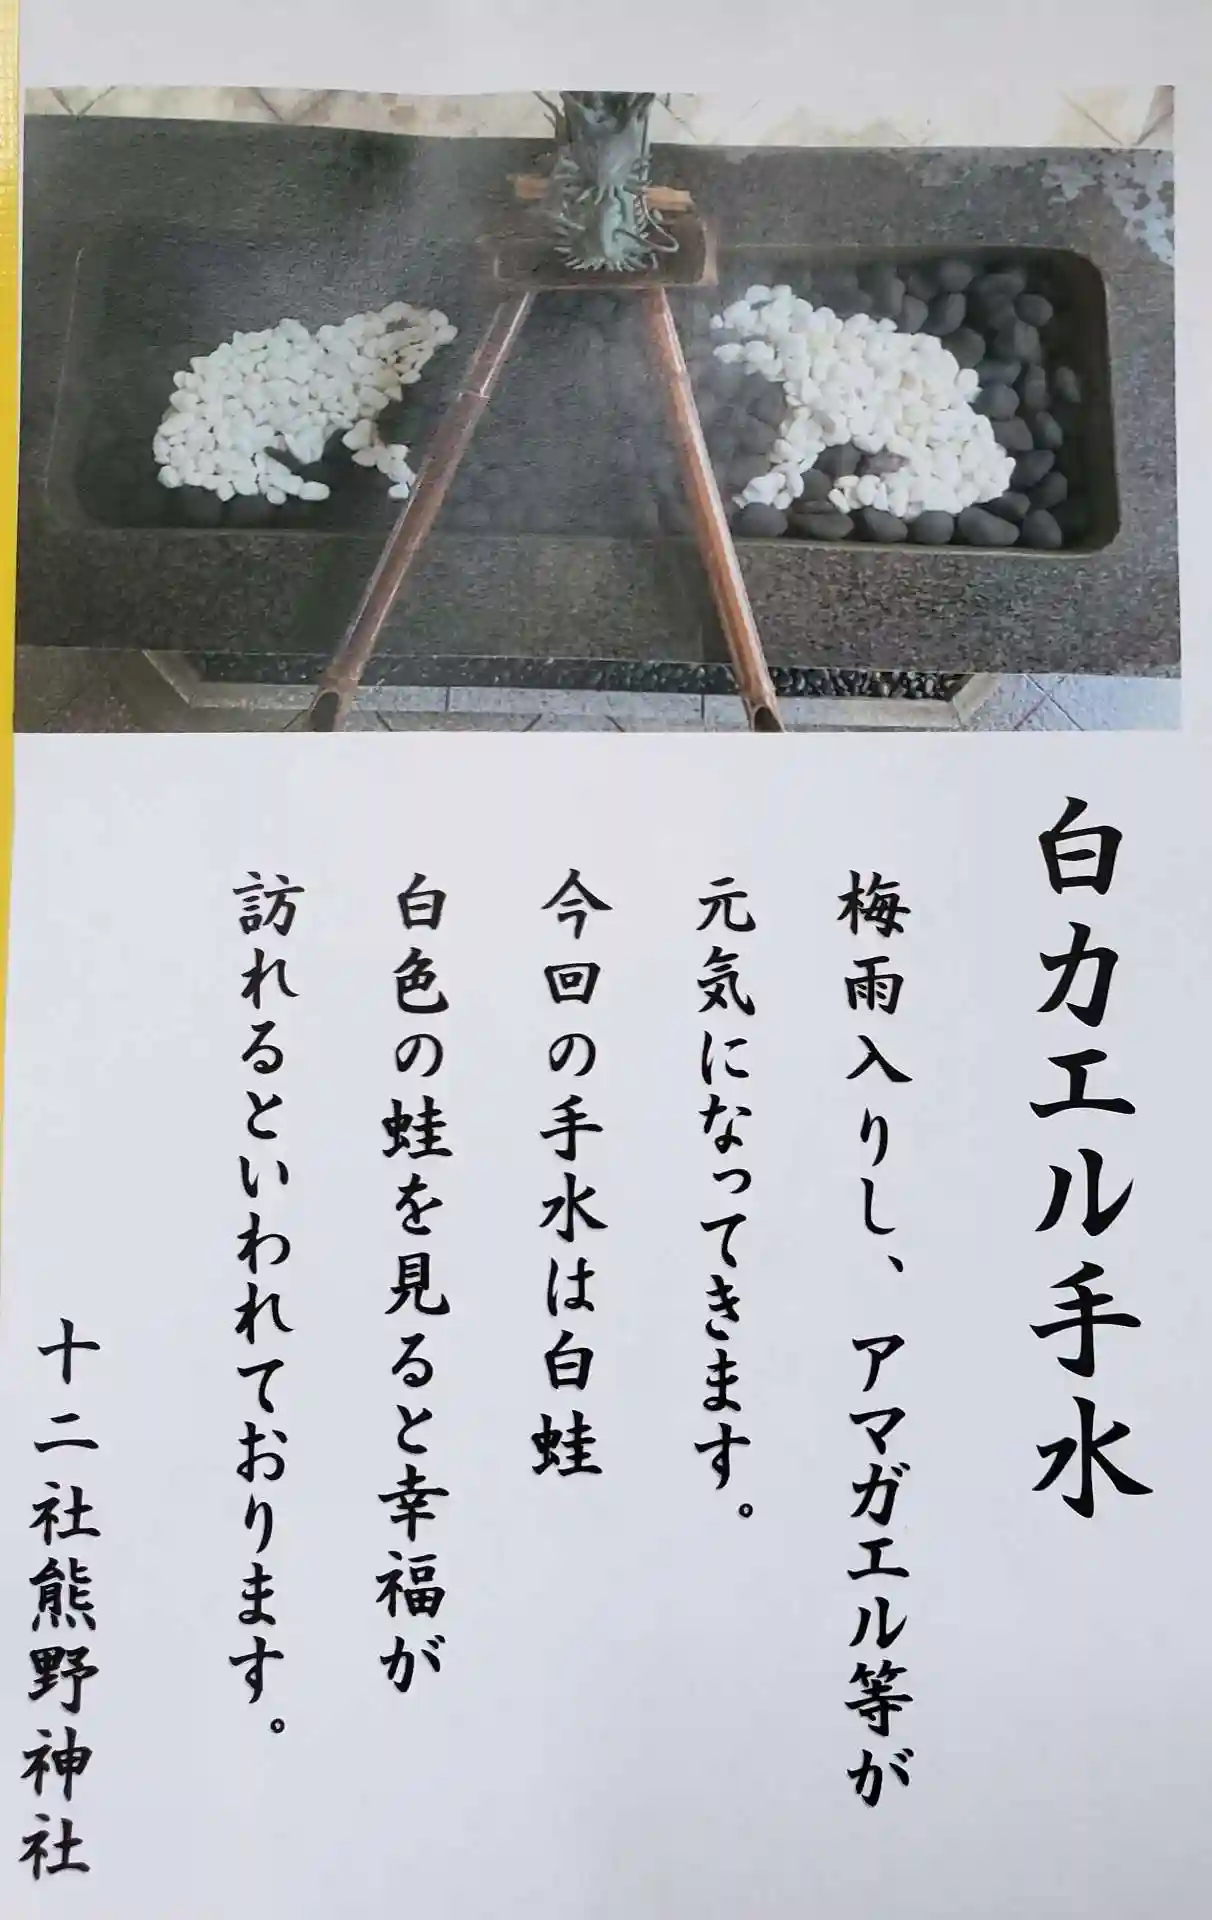 白カエル手水
梅雨入りし、アマガエル等が
元気になってきます。
今回の手水は白蛙
白色の蛙を見ると幸福が
訪れるといわれております。
十二社熊野神社